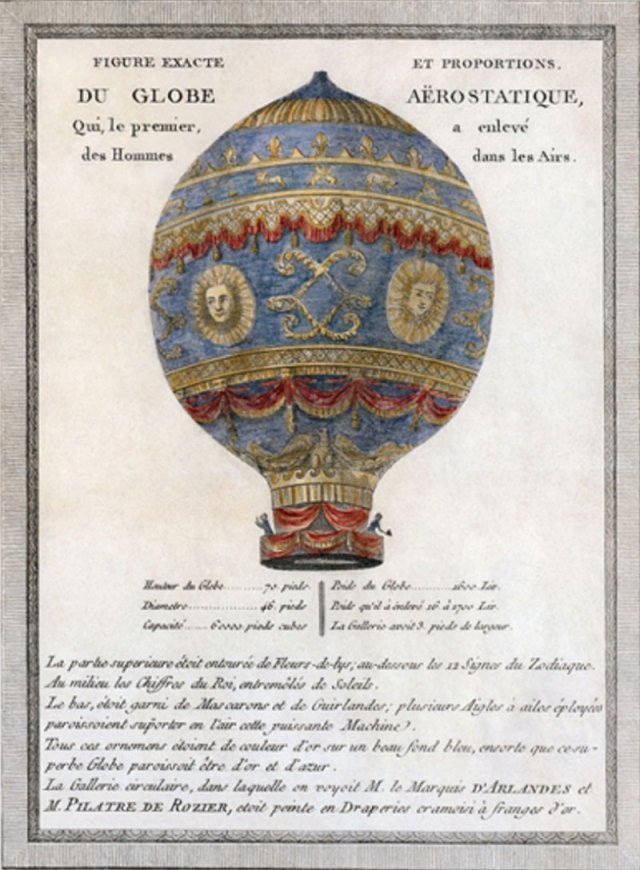 FIGURE EXACTE ET PROPORTIONS.
DU GLOBE AËROSTATIQUE,
Qui, le premier, a enlevé
des Hommes dans les Airs.
Hauteur du Globe..........70 pieds.
Diametre..................46. pieds
Capacité......60000 pieds cubes
Poids du Globe..........1600 Liv.
Poids qu'il à enlevé 16 à 1700 Liv.
La Gallerie avoit 3. pieds de largeur.
La partie superieure étoit entourée de Fleurs-de-lys; au-dessous les 12 Signes du Zodiaque.
Au milieu les Chiffres du Roi, entremêlés de Soleils.
Le bas, étoit garni de Mascarons et de Guirlandes; plusieurs Aigles à ailes éployées
paroissoient suporter en l'air cette puissante Machine).
Tous ces ornemens étoient de couleur d'or sur un beau fond bleu, ensorte que ce su-
perbe Globe paroissoit être d'or et d'azur.
La Gallerie circulaire, dans laquelle on voyoit M. le Marquis D'ARLANDES et
M. PILATRE DE ROZIER, etoit peinte en Draperies cramoisi à franges d'or.